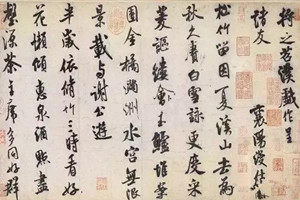 將之苕溪戲作呈
諸友
襄陽漫仕
松竹留因夏溪山去為
秋久賡白雪詠更度采
菱謳縷會玉鱸堆案
團金橘滿洲水宮無限
景載與謝公遊
半歲依脩竹三時看好
花懶傾惠泉酒點盡
壑源茶主席多同好群